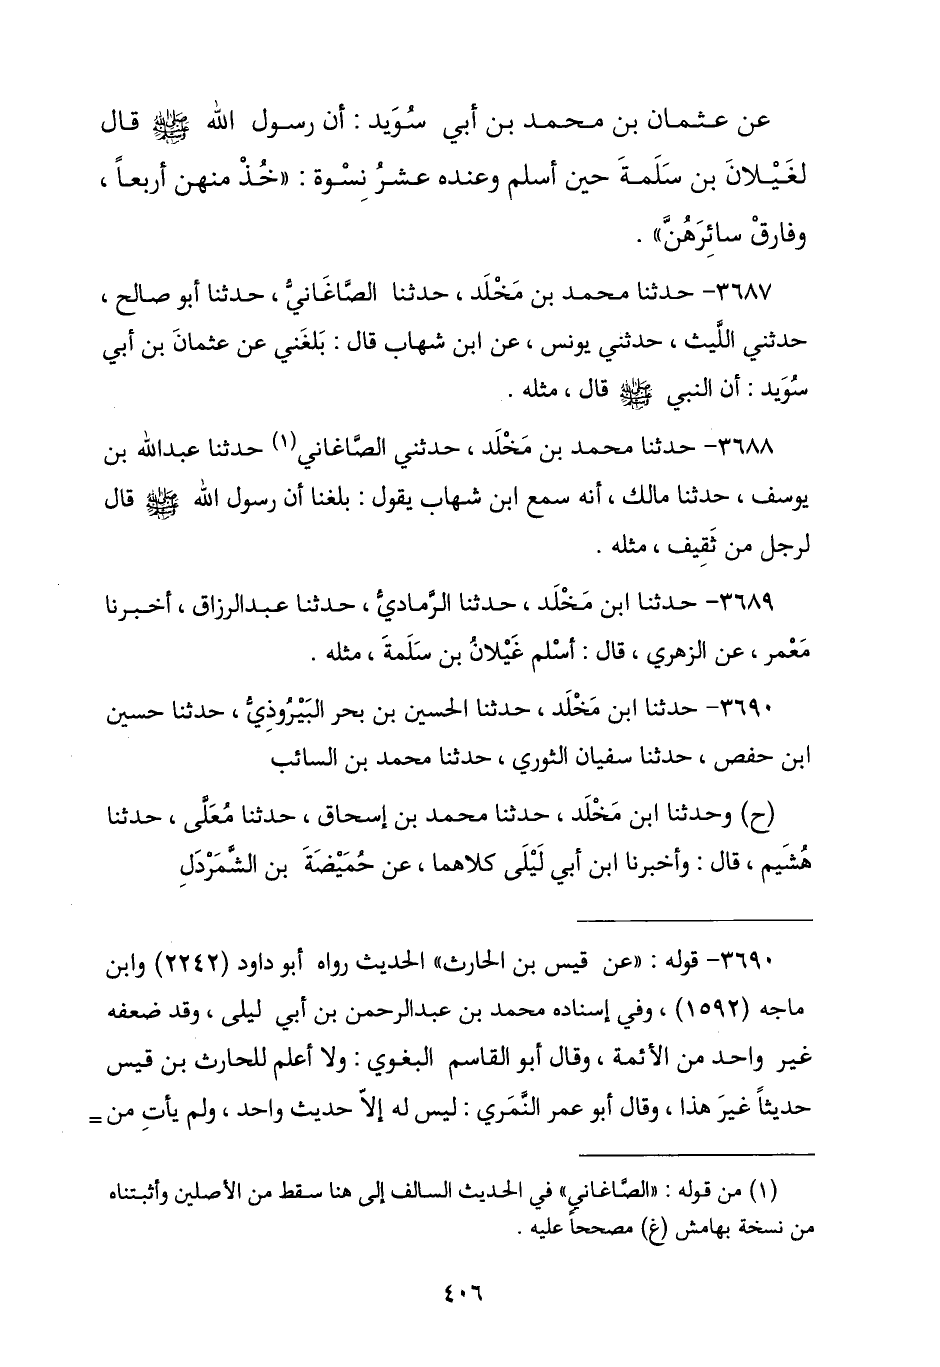 عن عثمان بن محمد بن أبي سُوَيد : أن رسول الله ﷺ قال
لغَيْلانَ بن سَلَمةَ حين أسلم وعنده عشرُ نِسْوة : «خُذْ منهن أربعاً ،
وفارقْ سائِرَهُنَّ» .
٣٦٨٧- حدثنا محمد بن مَخْلَد ، حدثنا الصَّاغَانيُّ ، حدثنا أبو صالح ،
حدثني اللَّيث ، حدثني يونس ، عن ابن شهاب قال : بَلغَني عن عثمانَ بن أبي
سُوَيد : أن النبي ﷺ قال ، مثله .
٣٦٨٨- حدثنا محمد بن مَخْلَد ، حدثني الصَّاغاني(١) حدثنا عبدالله بن
يوسف ، حدثنا مالك ، أنه سمع ابن شهاب يقول : بلغنا أن رسول الله ﷺ قال
لرجل من ثَقِيف ، مثله .
٣٦٨٩- حدثنا ابن مَخْلَد ، حدثنا الرَّماديُّ ، حدثنا عبدالرزاق ، أخبرنا
مَعْمر ، عن الزهري ، قال : أسْلم غَيْلانُ بن سَلَمةَ ، مثله .
٣٦٩٠- حدثنا ابن مَخْلَد ، حدثنا الحسين بن بحر البَيْرُوذِيُّ ، حدثنا حسين
ابن حفص ، حدثنا سفيان الثوري ، حدثنا محمد بن السائب
(ح) وحدثنا ابن مَخْلَد ، حدثنا محمد بن إسحاق ، حدثنا مُعَلَّى ، حدثنا
هُشَيم ، قال : وأخبرنا ابن أبي لَيْلَى كلاهما ، عن حُمَيْضَةَ بن الشَّمَرْدَلِ
٣٦٩٠- قوله : «عن قيس بن الحارث» الحديث رواه أبو داود (٢٢٤٢) وابن
ماجه (١٥٩٢) ، وفي إسناده محمد بن عبدالرحمن بن أبي ليلى ، وقد ضعفه
غير واحد من الأئمة ، وقال أبو القاسم البغوي : ولا أعلم للحارث بن قيس
حديثاً غيرَ هذا ، وقال أبو عمر النَّمَري : ليس له إلاّ حديث واحد ، ولم يأتِ من =
(١) من قوله : «الصَّاغاني» في الحديث السالف إلى هنا سقط من الأصلين وأثبتناه
من نسخة بهامش (غ) مصححاً عليه .
٤٠٦